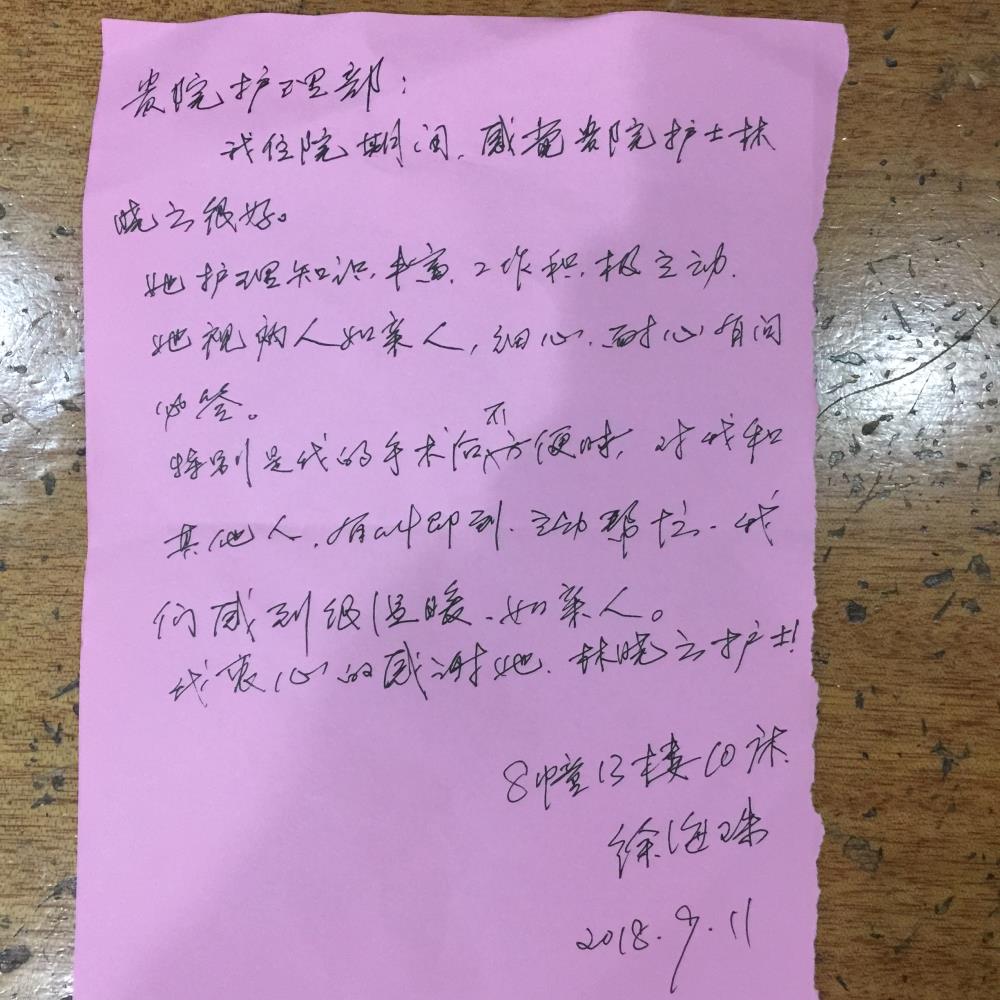 贵院护理部：
我住院期间，感觉贵院护士林
晓云很好。
她护理知识丰富，工作积极主动.
她视病人如亲人，细心.耐心有问
必答。
特别是我的手术后不方便时，对我和
其他人，有叫即到.主动帮忙.我
们感到很温暖.如亲人。
我衷心的感谢她.林晓云护士!
8幢13楼10床
徐海珠
2018.9.11